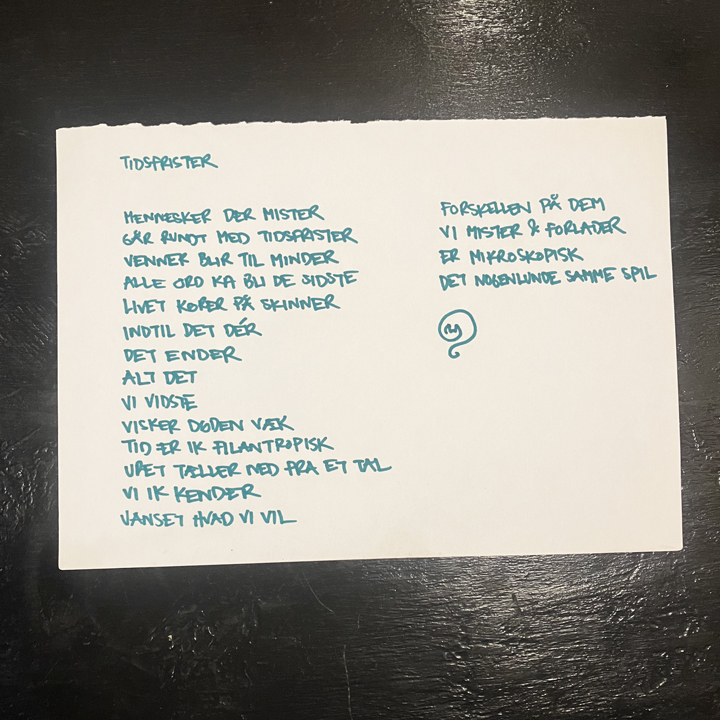 TIDSFRISTER
MENNESKER DER MISTER
GÅR RUNDT MED TIDSFRISTER
VENNER BLIR TIL MINDER
ALLE ORD KA BLI DE SIDSTE
LIVET KØRER PÅ SKINNER
INDTIL DET DÉR
DET ENDER
ALT DET
VI VIDSTE
VISKER DØDEN VÆK
TID ER IK FILANTROPISK
URET TÆLLER NED FRA ET TAL
VI IK KENDER
UANSET HVAD VI VIL
FORSKELLEN PÅ DEM
VI MISTER & FORLADER
ER MIKROSKOPISK
DET NOGENLUNDE SAMME SPIL